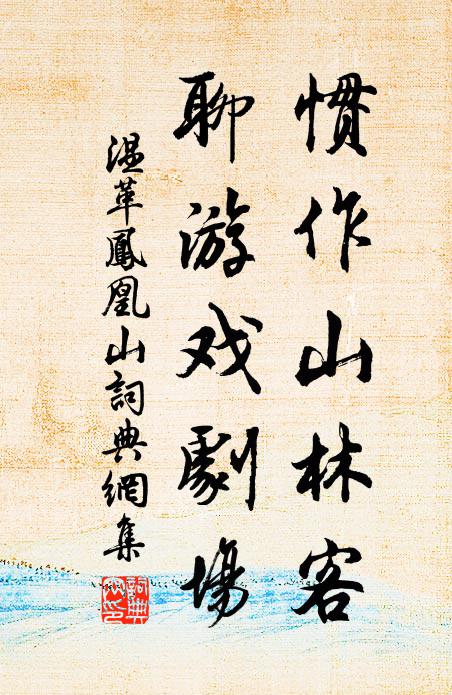 慣作山林客
聊游戏劇場
温革鳳凰山詞典網集